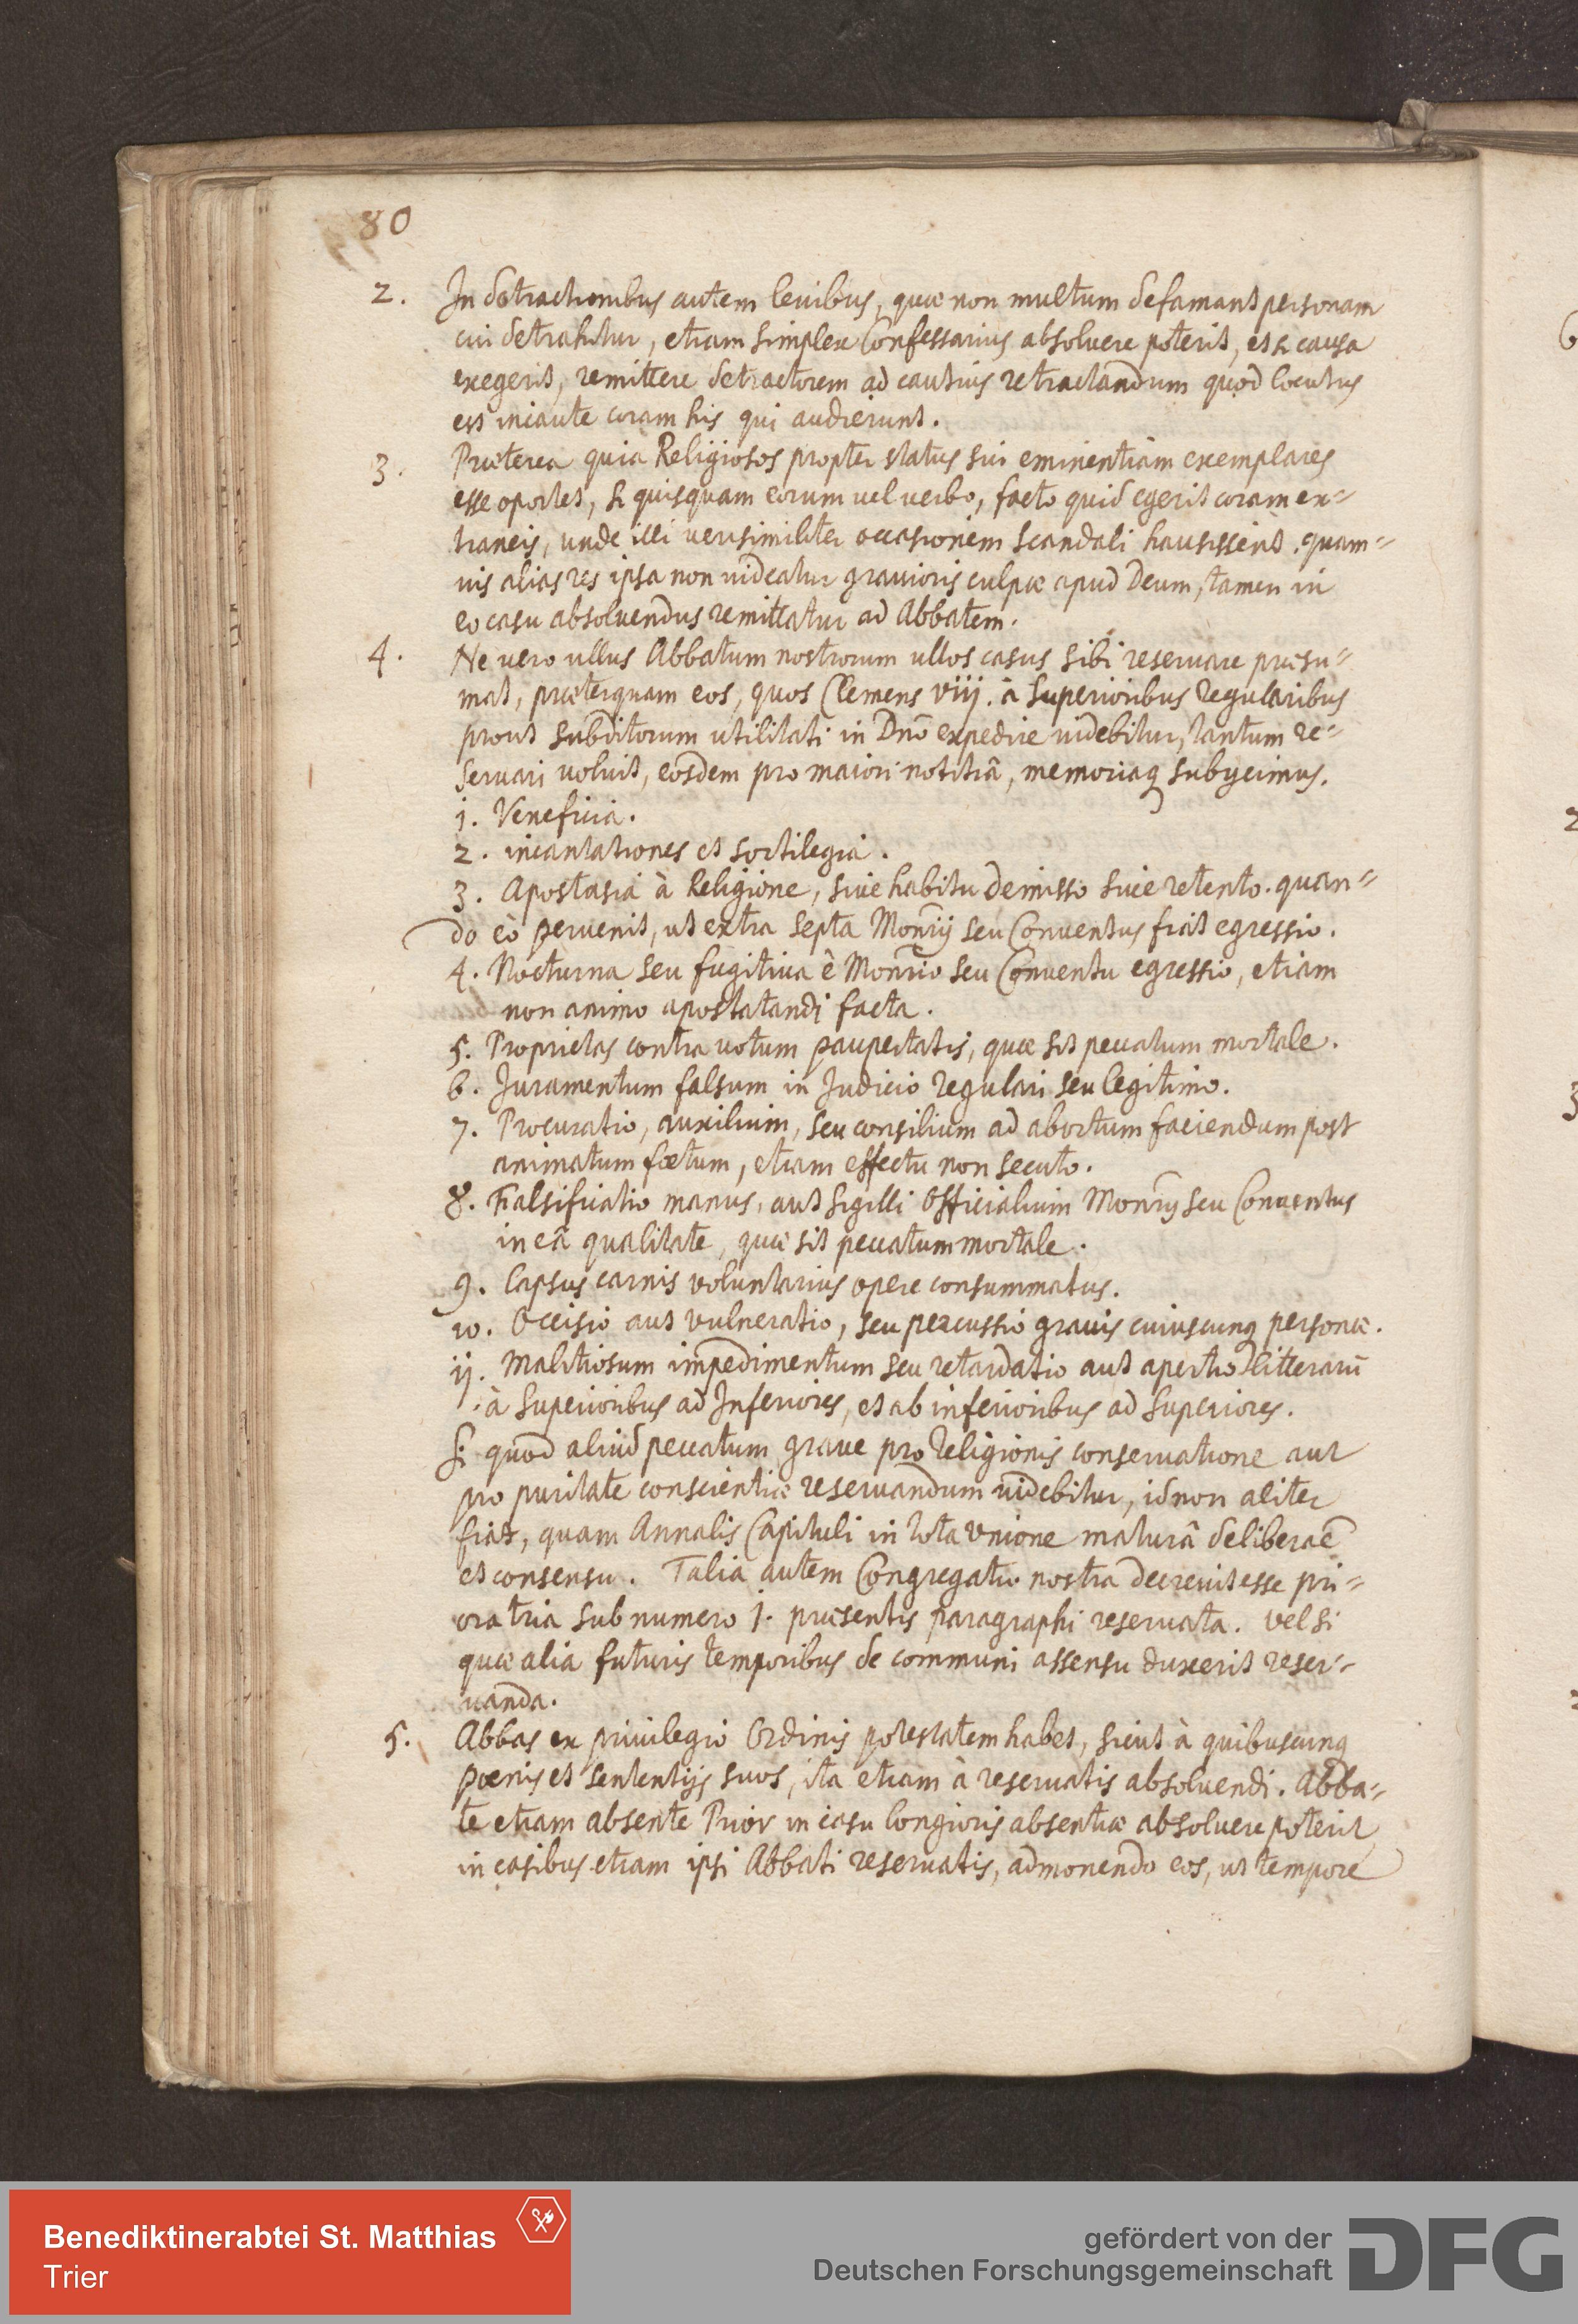 80
2. In detractionibus autem leuibus, quæ non multum defamant personam
cui detrahitur, etiam simplex Confessarius absoluere poterit, et si causa
exegerit, remittere detractorem ad cautius retractandum quod locutus
est incaute coram his qui audierunt.
3. Præterea quia Religiosos propter status sui eminentiam exemplares
esse oportet, si quisquam eorum vel verbo, facto quid egerit coram ex=
traneis, unde illi verisimiliter occasionem scandali hausissent. quam=
uis alias res ipsa non uideatur grauioris culpæ apud Deum, tamen in
eo casu absoluendus remittatur ad Abbatem.
4. Ne uero ullus Abbatum nostrorum ullos casus sibi reseruare præsu=
mat, præterquam eos, quos Clemens viij. à Superioribus regularibus
prout subditorum utilitati in Dnō expedire uidebitur, tantum re=
seruari voluit, eosdem pro maiori notitiâ, memoriaq subycimus.
1. Veneficia.
2. incantationes et sortilegia.
3. Apostasia à Religione, siue habitu demisso siue retento. quan=
do eò peruenit, ut extra septa Monrīj seu Conuentus fiat egressio.
4. Nocturna seu fugitiua è Monrīo seu Conuentu egressio, etiam
non animo apostatandi facta.
5. Proprietas contra uotum paupertatis, quæ sit peccatum mortale.
6. Juramentum falsum in Judicio regulari seu legitimo.
7. Procuratio, auxilium, seu consilium ad abortum faciendum post
animatum fœtum, etiam effectu non secuto.
8. Falsificatio manus, aut sigilli Officialium Monrīj seu Conuentus
in eâ qualitate, quæ sit peccatum mortale.
9. Lapsus carnis voluntarius opere consummatus.
10. Occisio aut vulneratio, seu percussio grauis cuiuscunq personæ.
11. Malitiosum impedimentum seu retardatio aut apertio litterarū
à Superioribus ad Inferiores, et ab inferioribus ad Superiores.
Si quod aliud peccatum graue pro Religionis conseruatione aut
pro puritate conscientiæ reseruandum uidebitur, id non aliter
fiat, quam Annalis Capituli in tota Vnione maturâ deliberaē
et consensu. Talia autem Congregatio nostra decreuit esse pri=
ora tria sub numero 1. præsentis paragraphi reseruata. vel si
quæ alia futuris temporibus de communi assensu duxerit reser=
uanda.
5. Abbas ex priuilegio Ordinis potestatem habet, sicut à quibuscunq
pœnis et sententijs suos, ita etiam à reseruatis absoluendi. Abba=
te etiam absente Prior in casu longioris absentiæ absoluere poterit
in casibus etiam ipsi Abbati reseruatis, admonendo eos, ut tempore
Benediktinerabtei St. Matthias
Trier
gefördert von der
Deutschen Forschungsgemeinschaft
DFG